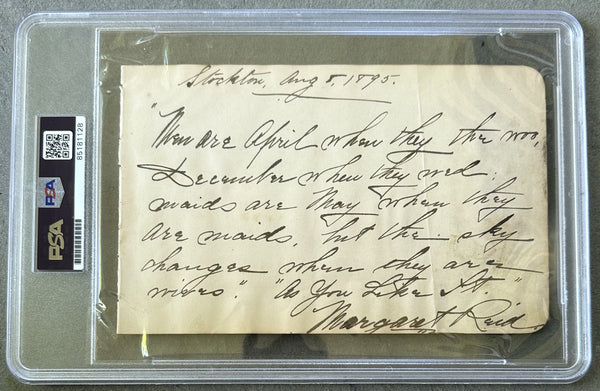 Stockton, Aug 8, 1895.
"Men are April when they the woo,
December when they wed:
maids are May when they
are maids, but the sky
changes when they are
wives." "As You Like It."
Margaret Reid
PSA
85181128
PSA